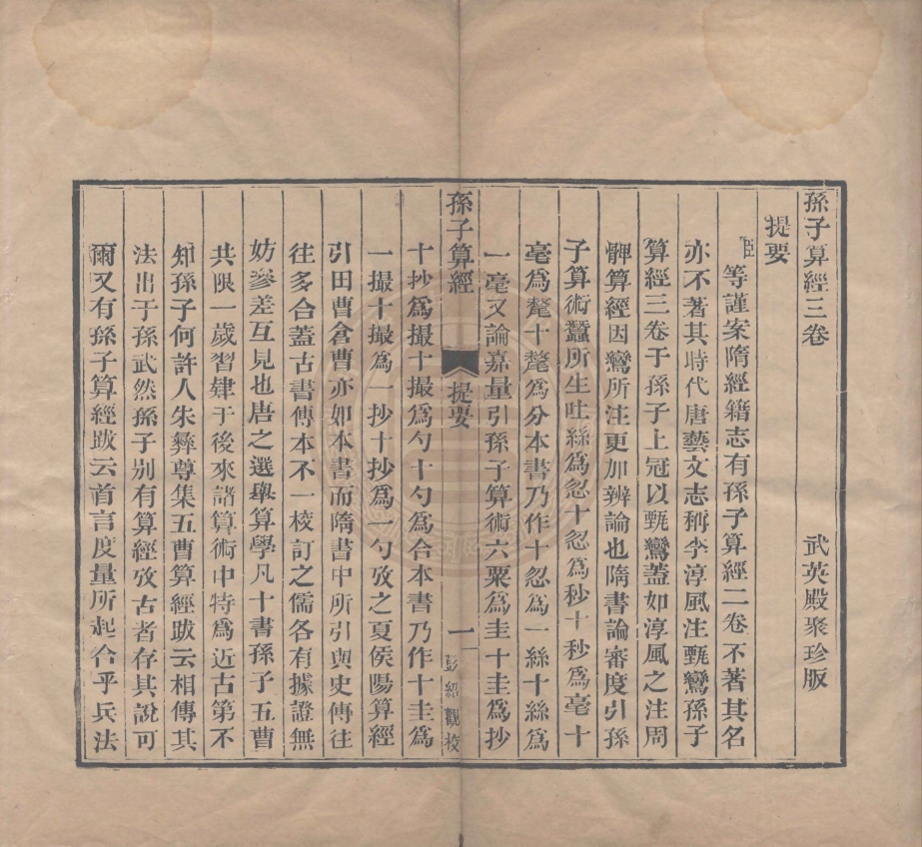 孫子算經三卷 武英殿聚珍版
提要
臣等謹案隋經籍志有孫子算經二卷不著其名
亦不著其時代唐藝文志稱李淳風注甄鸞孫子
算經三卷于孫子上冠以甄鸞蓋如淳風之注周
髀算經因鸞所注更加辨論也隋書論審度引孫
子算術蠶所生吐絲爲忽十忽爲秒十秒爲毫十
毫爲氂十氂爲分本書乃作十忽爲一絲十絲爲
一毫又論嘉量引孫子算術六粟爲圭十圭爲抄
孫子算經 提要 一 彭紹觀校
十抄爲撮十撮爲勺十勺爲合本書乃作十圭爲
一撮十撮爲一抄十抄爲一勺攷之夏侯陽算經
引田曹倉曹亦如本書而隋書中所引與史傳往
往多合蓋古書傳本不一校訂之儒各有據證無
妨參差互見也唐之選舉算學凡十書孫子五曹
共限一歲習肄于後來諸算術中特爲近古第不
知孫子何許人朱彝尊集五曹算經跋云相傳其
法出于孫武然孫子别有算經攷古者存其說可
爾又有孫子算經跋云首言度量所起合乎兵法